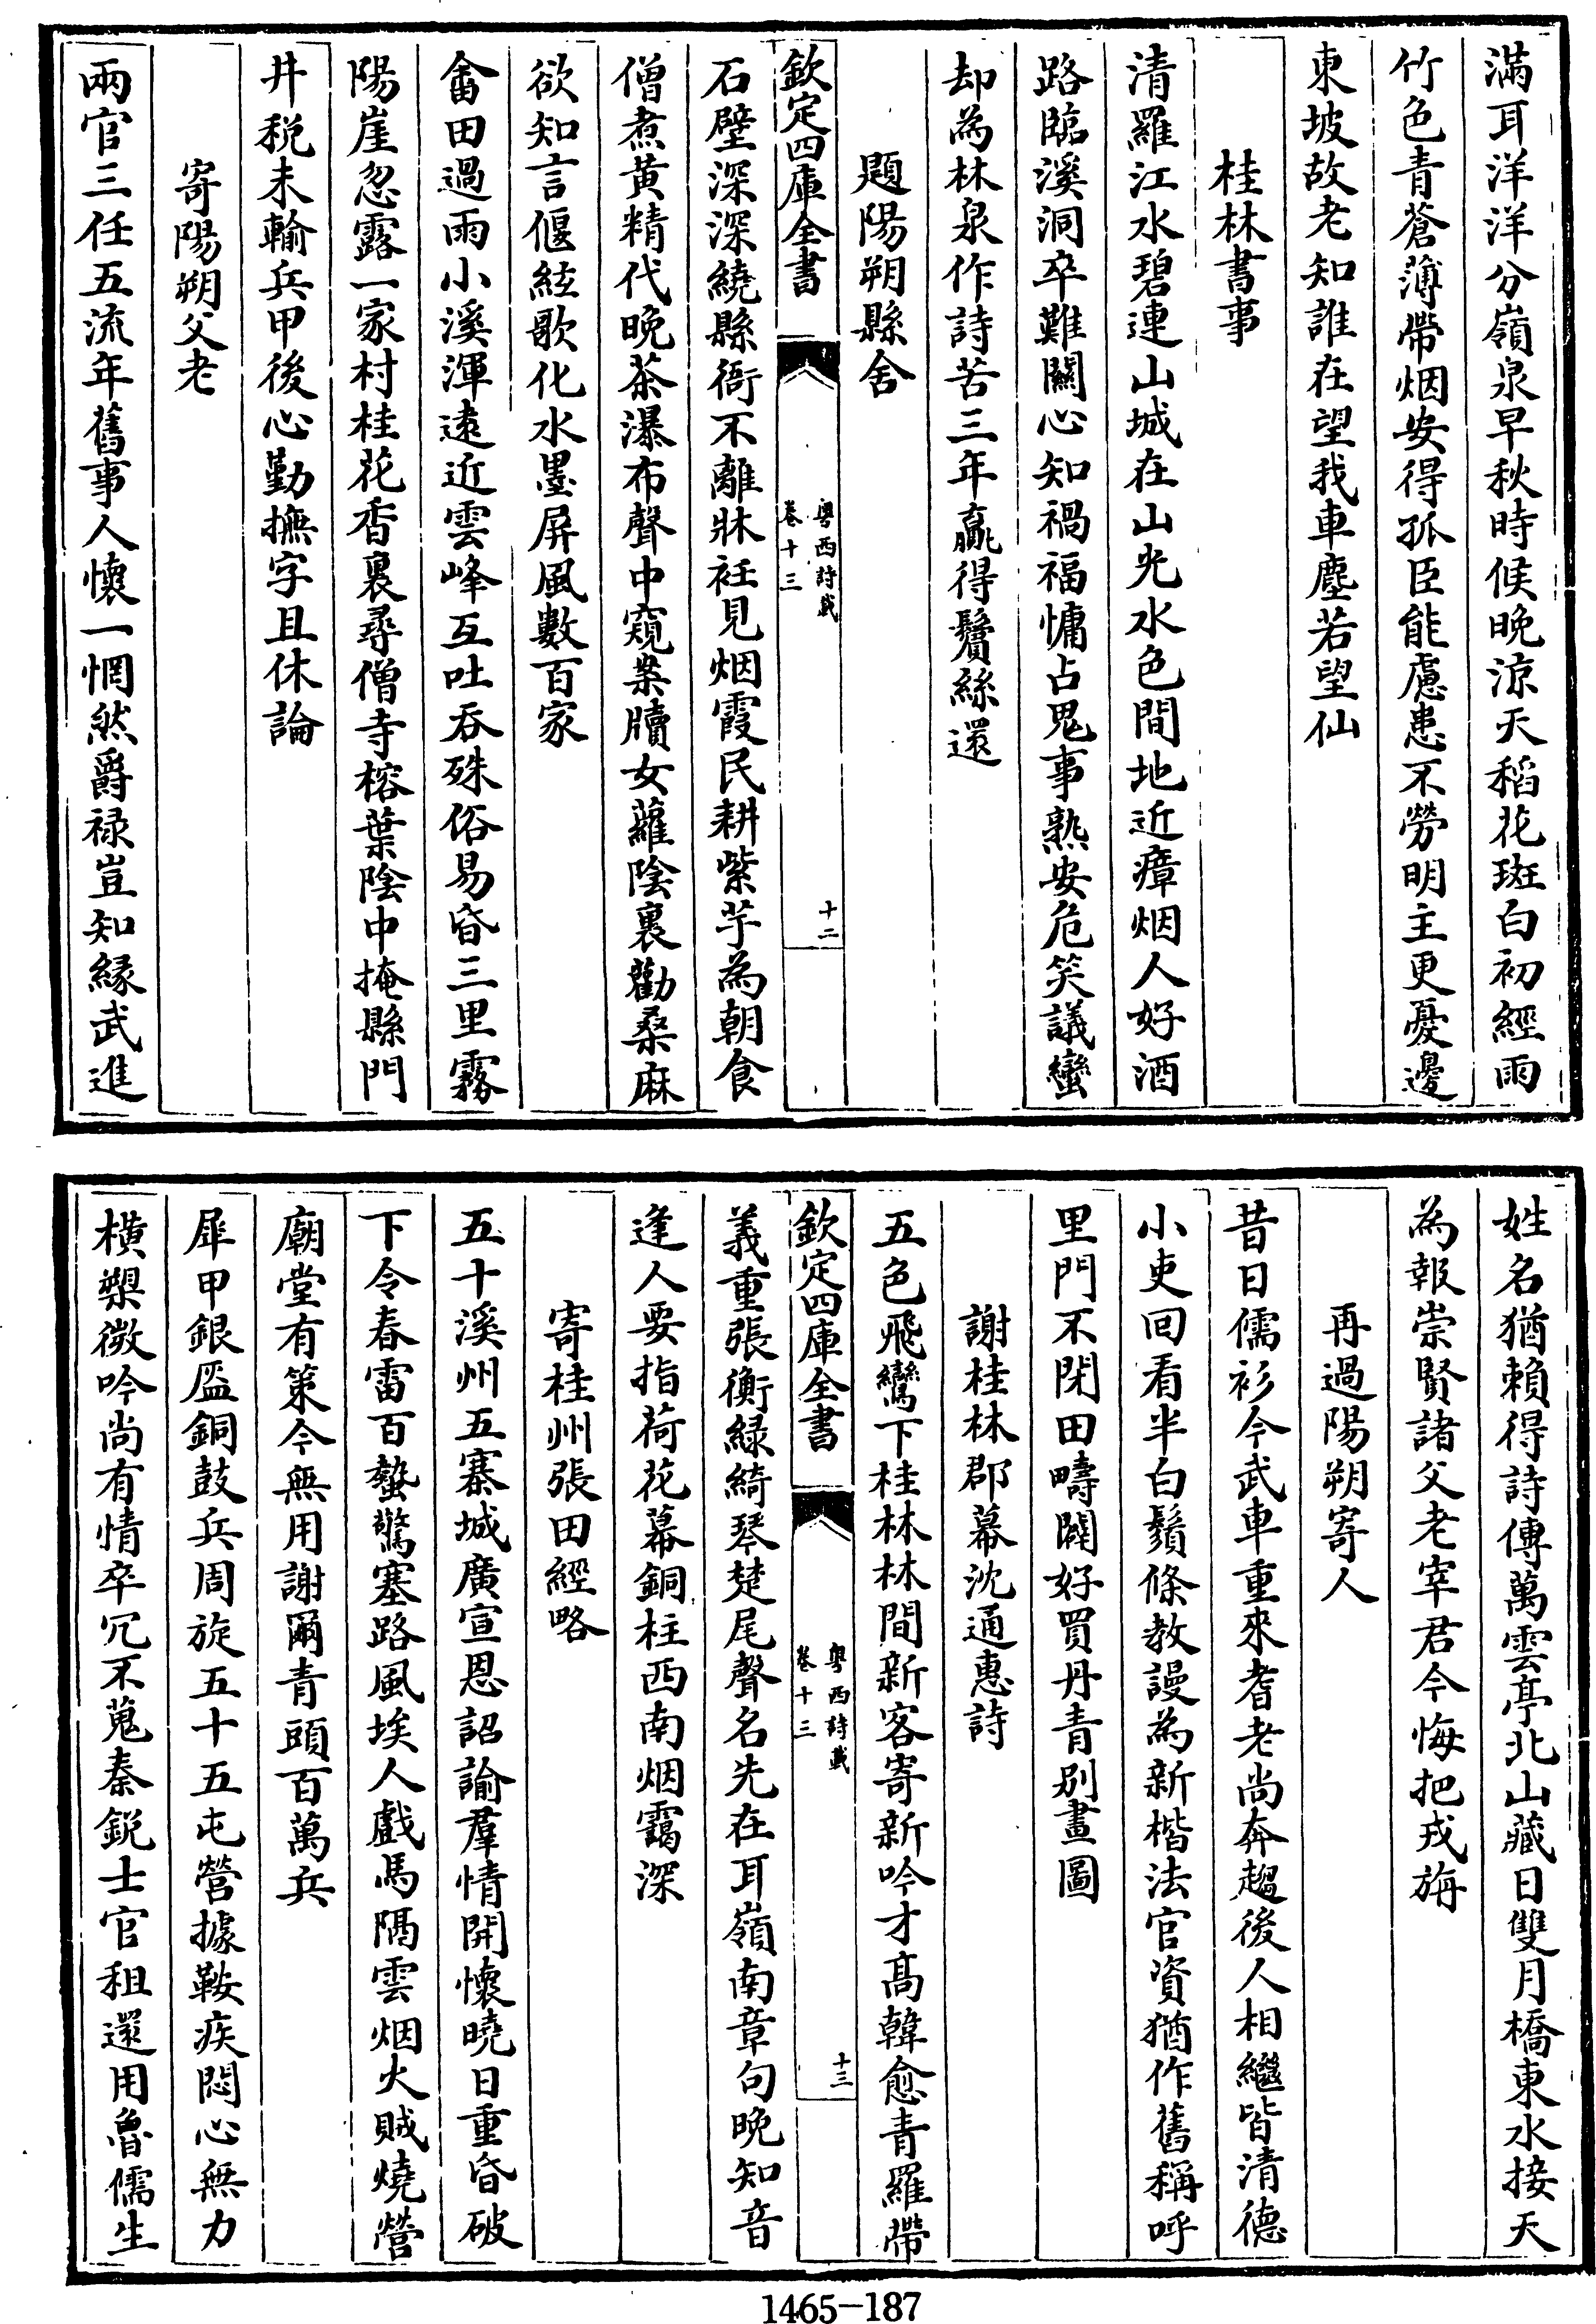 滿耳洋洋分嶺泉早秋時候晚涼天稻花斑白初經雨
竹色青蒼薄帶烟安得孤臣能慮患不勞明主更憂邊
東坡故老知誰在望我車塵若望仙
桂林書事
清羅江水碧連山城在山光水色間地近瘴烟人好酒
路臨溪洞卒難關心知禍福慵占鬼事熟安危笑議蠻
却為林泉作詩苦三年贏得鬢絲還
題陽朔縣舍
欽定四庫全書
粤西詩載
卷十三
十二
石壁深深繞縣衙不離牀衽見烟霞民耕紫芋為朝食
僧煮黄精代晚茶瀑布聲中窺案牘女蘿陰裏勸桑麻
欲知言偃絃歌化水墨屏風數百家
畬田過雨小溪渾遠近雲峰互吐吞殊俗易昏三里霧
陽崖忽露一家村桂花香裏尋僧寺榕葉陰中掩縣門
井税未輸兵甲後心勤撫字且休論
寄陽朔父老
兩官三任五流年舊事人懷一惘然爵禄豈知緣武進
姓名猶賴得詩傳萬雲亭北山藏日雙月橋東水接天
為報崇賢諸父老宰君今悔把戎旃
再過陽朔寄人
昔日儒衫今武車重來耆老尚奔趨後人相繼皆清德
小吏回看半白鬚條教謾為新楷法官資猶作舊稱呼
里門不閉田疇闢好買丹青别畫圖
謝桂林郡幕沈通惠詩
五色飛鸞下桂林林間新客寄新吟才髙韓愈青羅帶
欽定四庫全書
粤西詩載
卷十三
十三
義重張衡緑綺琴楚尾聲名先在耳嶺南章句晚知音
逢人要指荷花幕銅柱西南烟靄深
寄桂州張田經略
五十溪州五寨城廣宣恩詔諭羣情開懷曉日重昏破
下令春雷百蟄驚塞路風埃人戲馬隔雲烟火賊燒營
廟堂有策今無用謝爾青頭百萬兵
犀甲銀盔銅鼓兵周旋五十五屯營據鞍疾悶心無力
横槊微吟尚有情卒冗不蒐秦鋭士官租還用魯儒生
1465-187